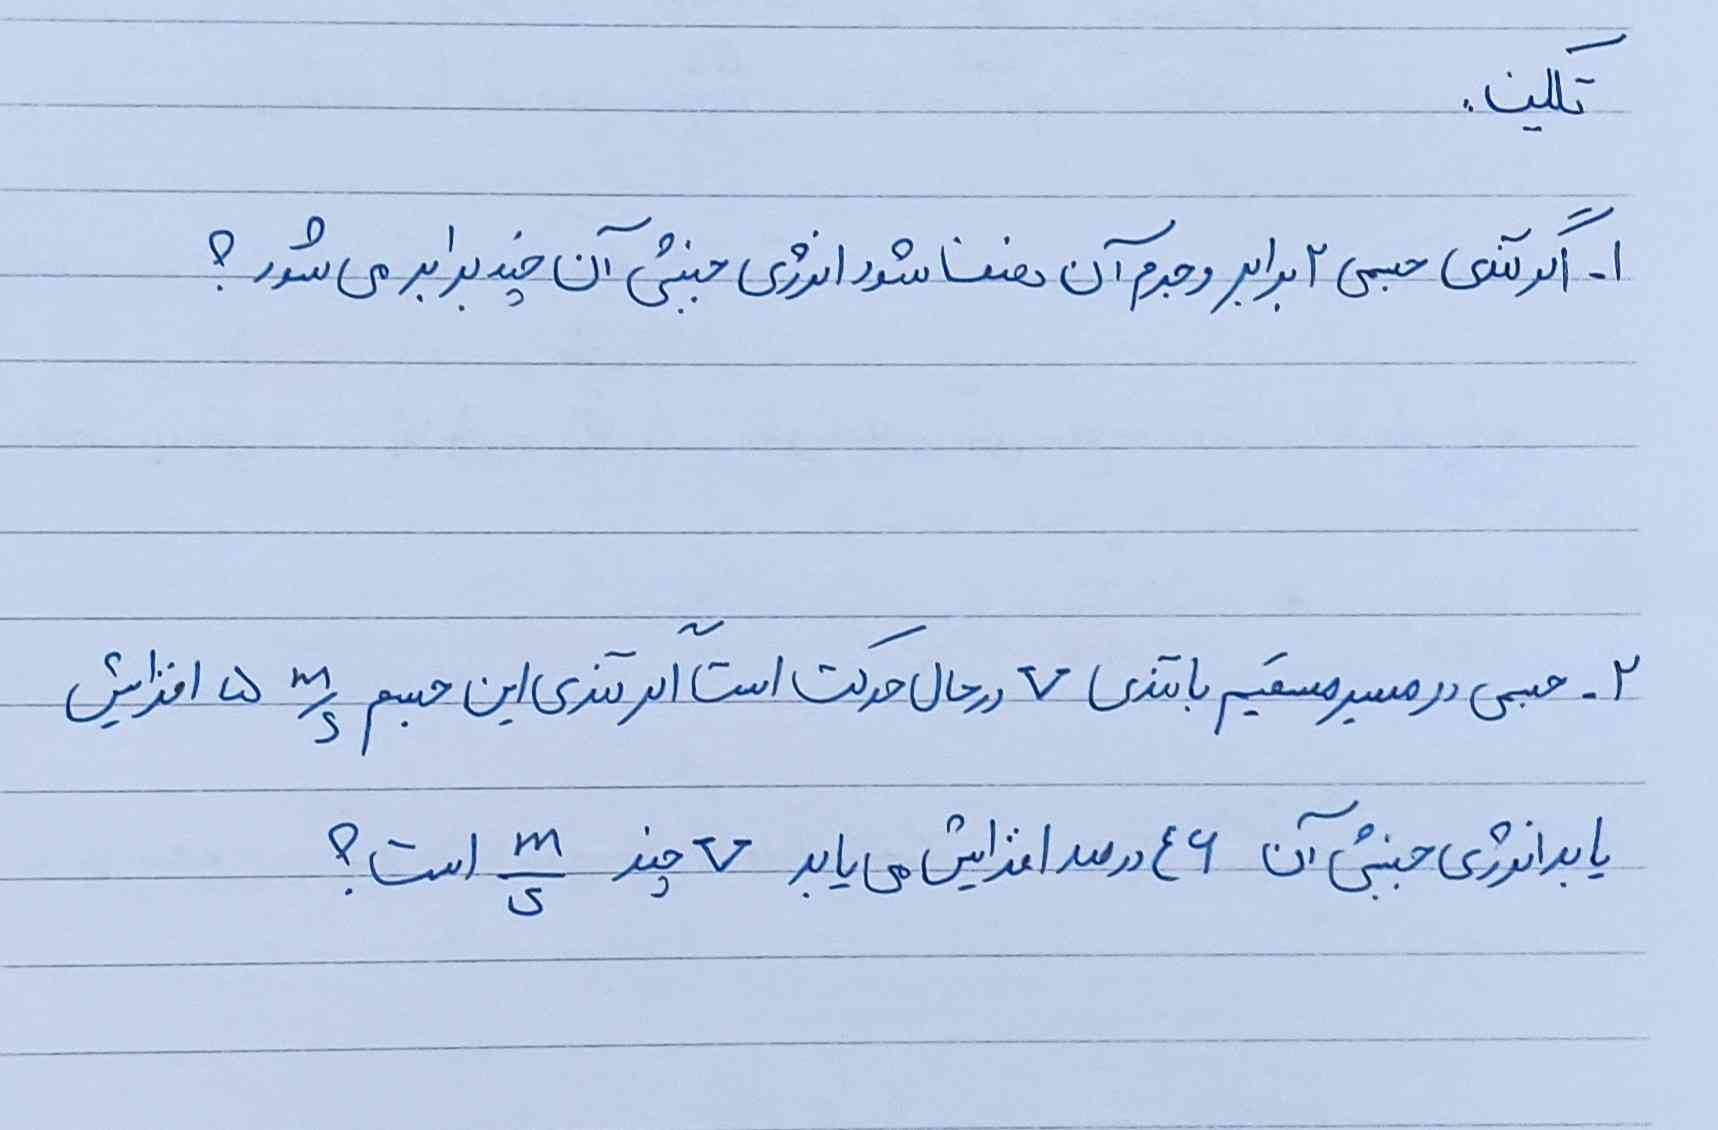 تکلیف:
۱- اگر تندی جسمی ۲ برابر و جرم آن نصف شود انرژی جنبشی آن چند برابر می شود؟
۲- جسمی در مسیر مستقیم با تندی v در حال حرکت است اگر تندی این جسم ۵ m/s افزایش
یابد انرژی جنبشی آن ۴۴ درصد افزایش می یابد v چند m/s است؟